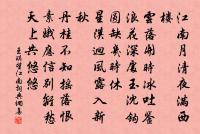 江南月清夜滿西
樓
雲落開時冰吐鑒
浪花深處玉沈鉤
圓缺幾時休
星漢迥風露入新
秋
丹桂不知摇落恨
素娥應信別離愁
天上共悠悠
王琪望江南詞